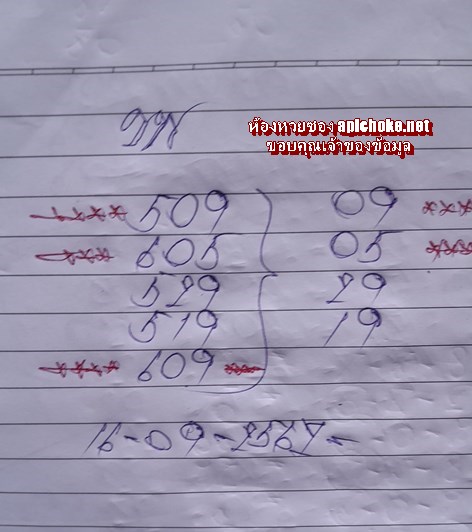 ห้องหวยซอง apichoke.net
ขอบคุณเจ้าของข้อมูล
**** 509 09 ***
*** 605 05 ***
529 29
519 19
**** 609 ***
16-09-2567-